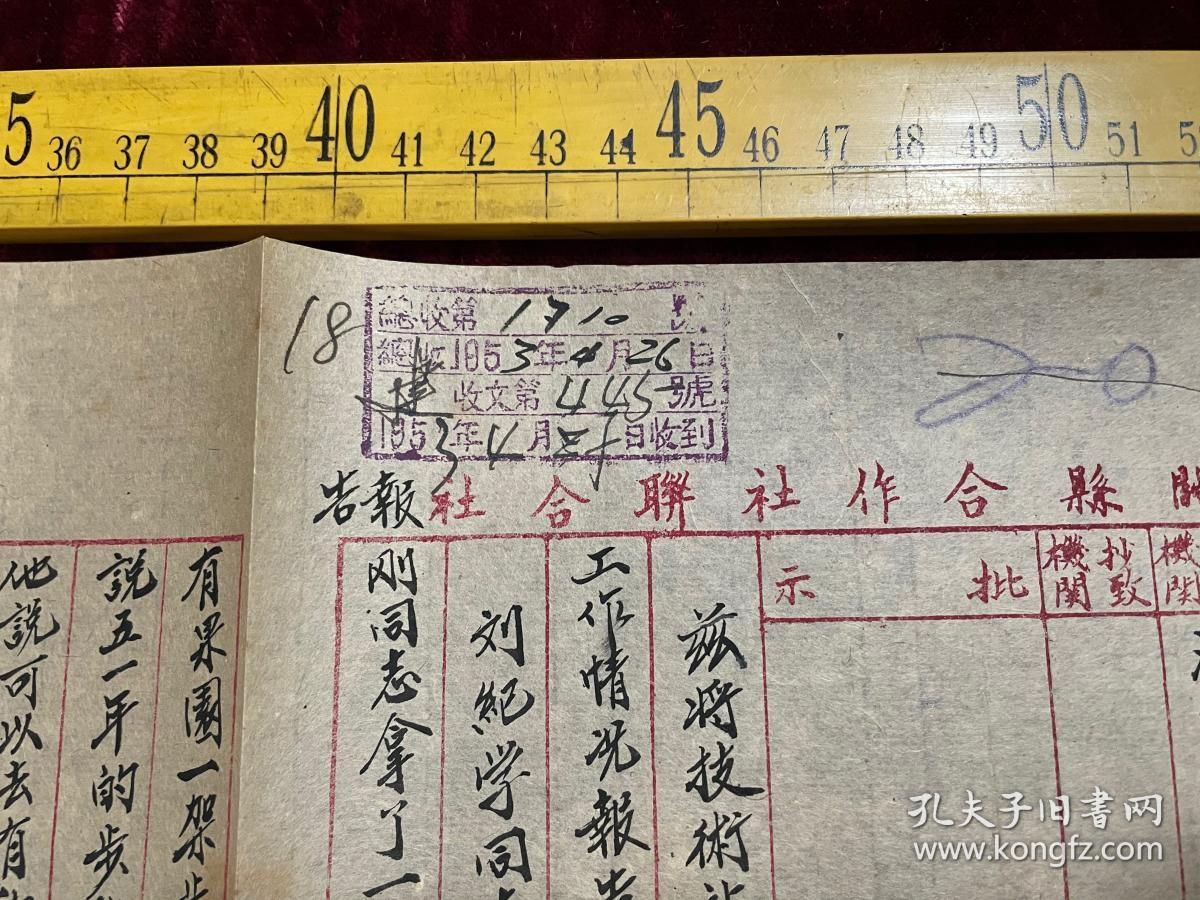 5 36 37 38 39 40 41 42 43 44 45 46 47 48 49 50 51 5
18
總收第1710號
總收1953年4月26日
收文第445號
1953年4月 日收到
縣合作社聯合社報告
機關
抄致機關
批示
兹將技術
工作情况報告
刘紀学同
刚同志拿了一
有果園一架
説五一年的步
他説可以去有
孔夫子旧书网
www.kongfz.com